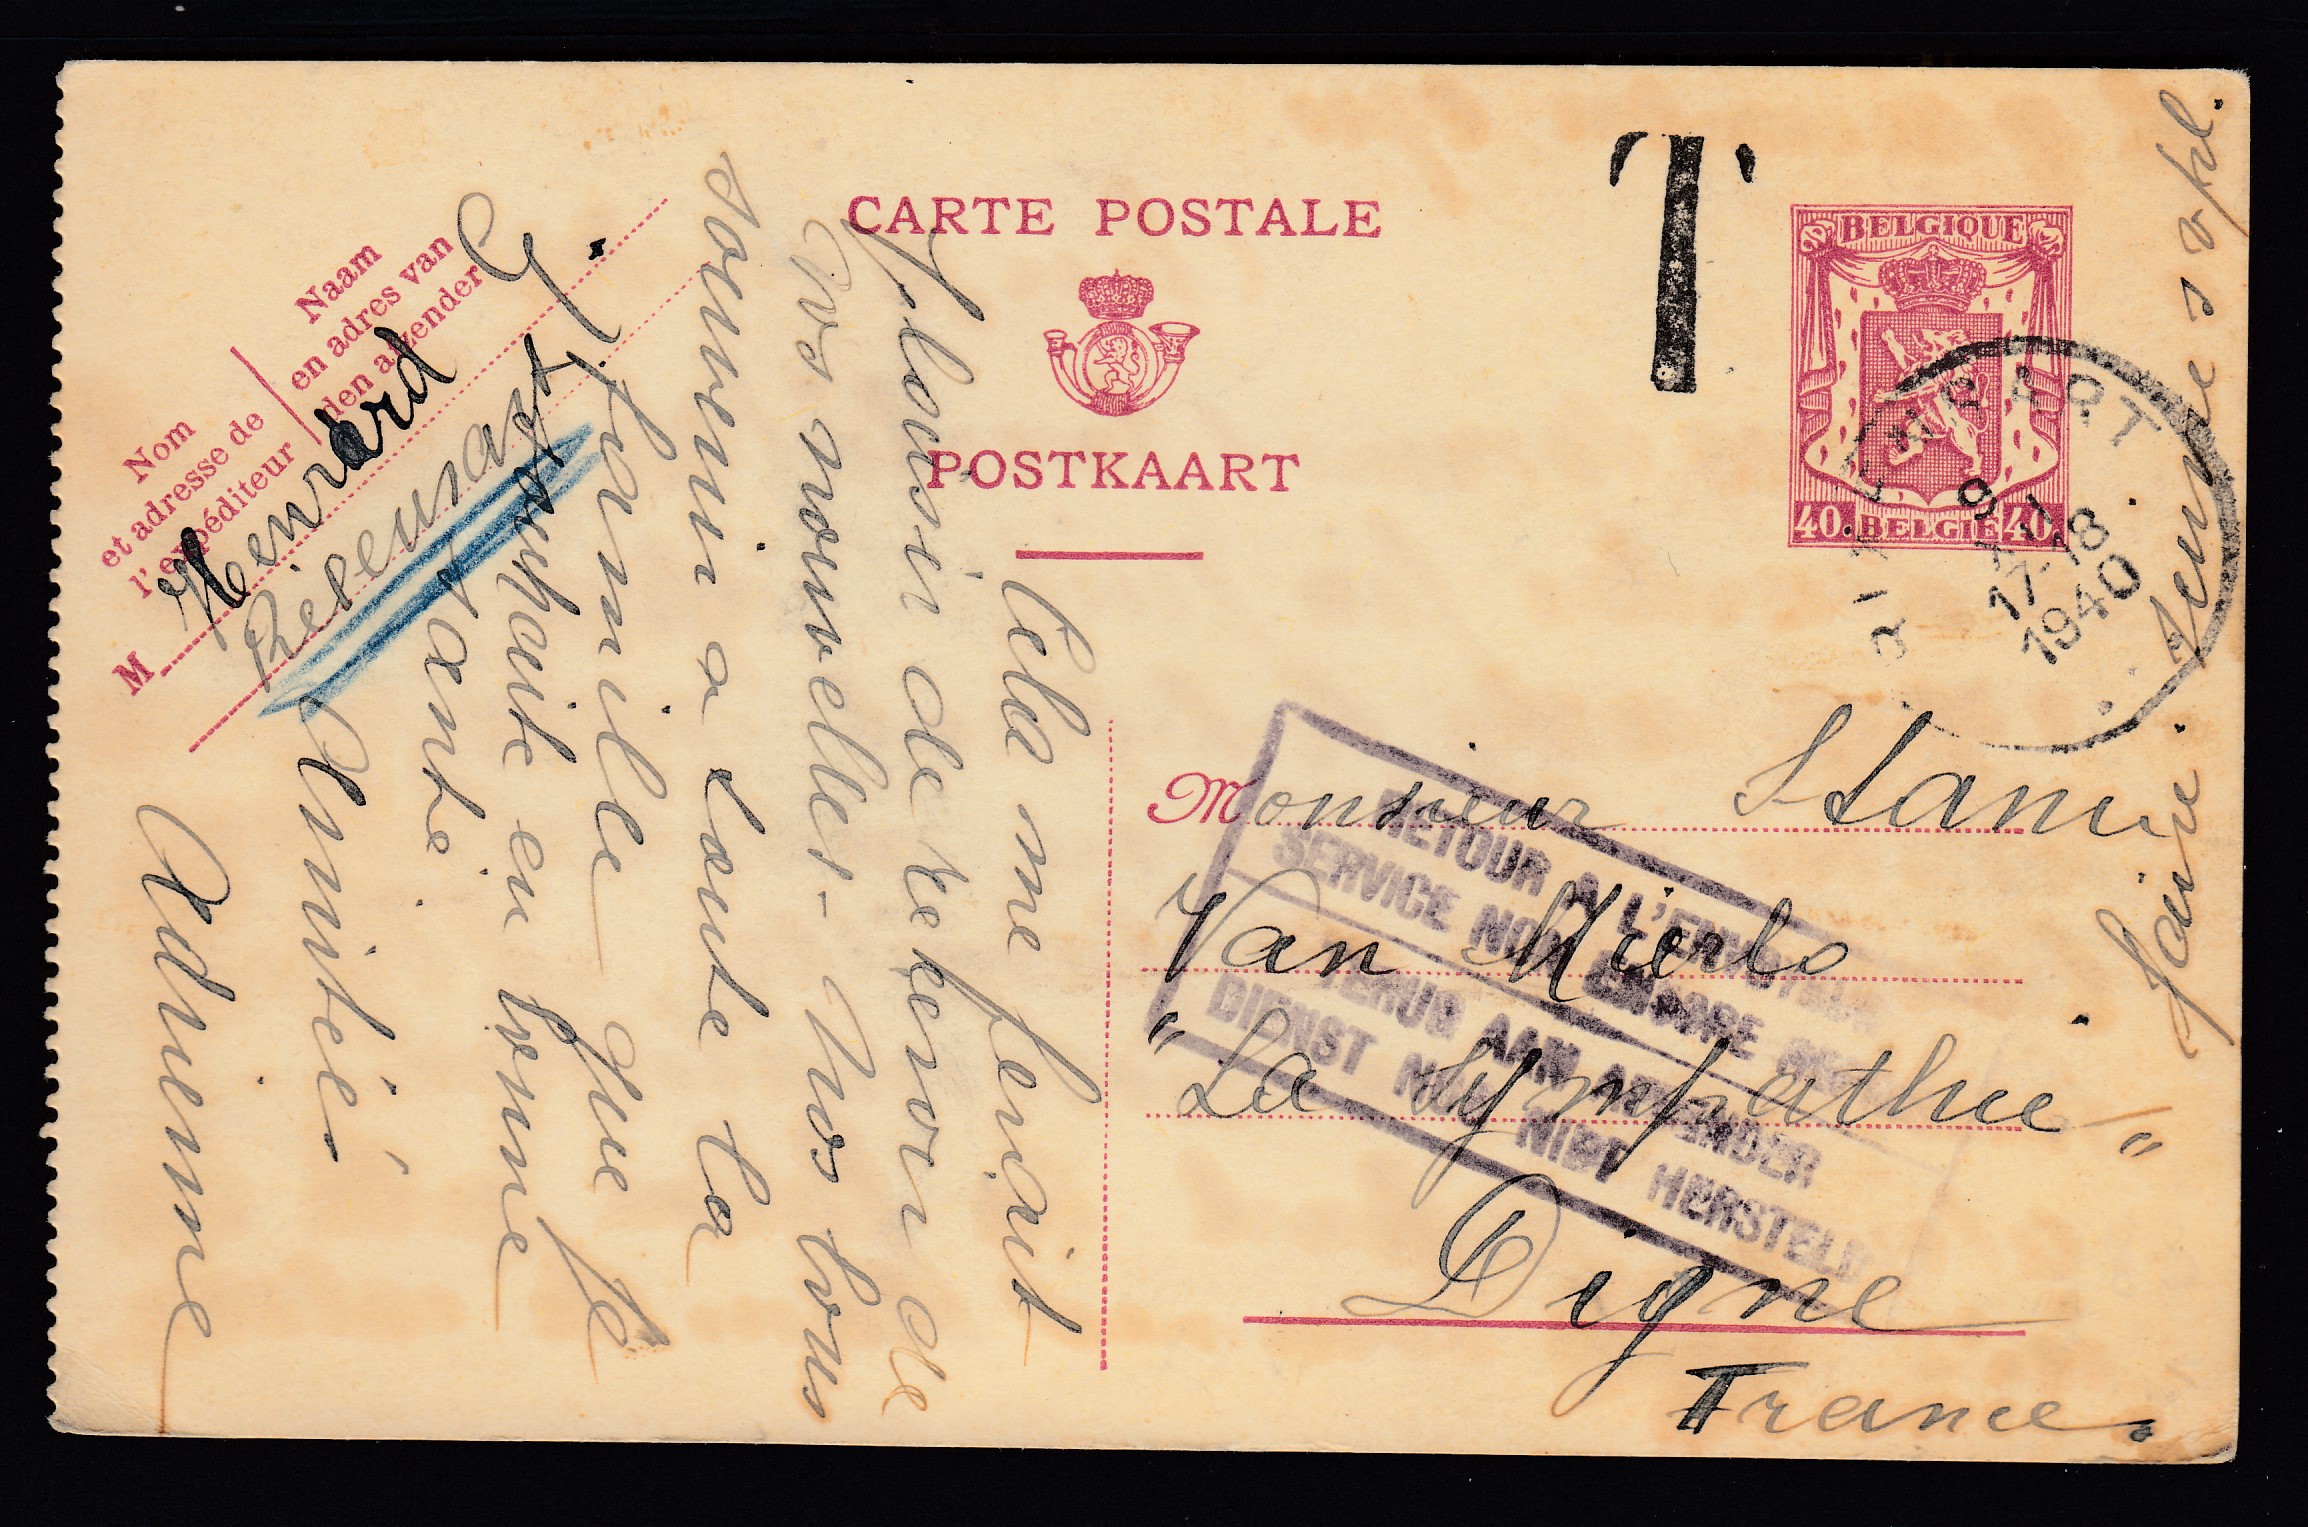 CARTE POSTALE
POSTKAART
BELGIQUE
40 BELGIË 40
T
9 XII
17-18
1940
Nom
et adresse de
l'expéditeur
Naam
en adres van
den afzender
M Henrard
Cela me ferait
plaisir de recevoir de
vos nouvelles - Nos bons
souvenirs a toute la
famille que je
souhaite en bonne
santé
Amitié
Adrienne
Faire suivre svpl.
Monsieur Stanis
Van Mierlo
"La Sympathie"
Digne
France.
RETOUR A L'ENVOYEUR
SERVICE NON ENCORE
TERUG AAN AFZENDER
DIENST NOG NIET HERSTELD